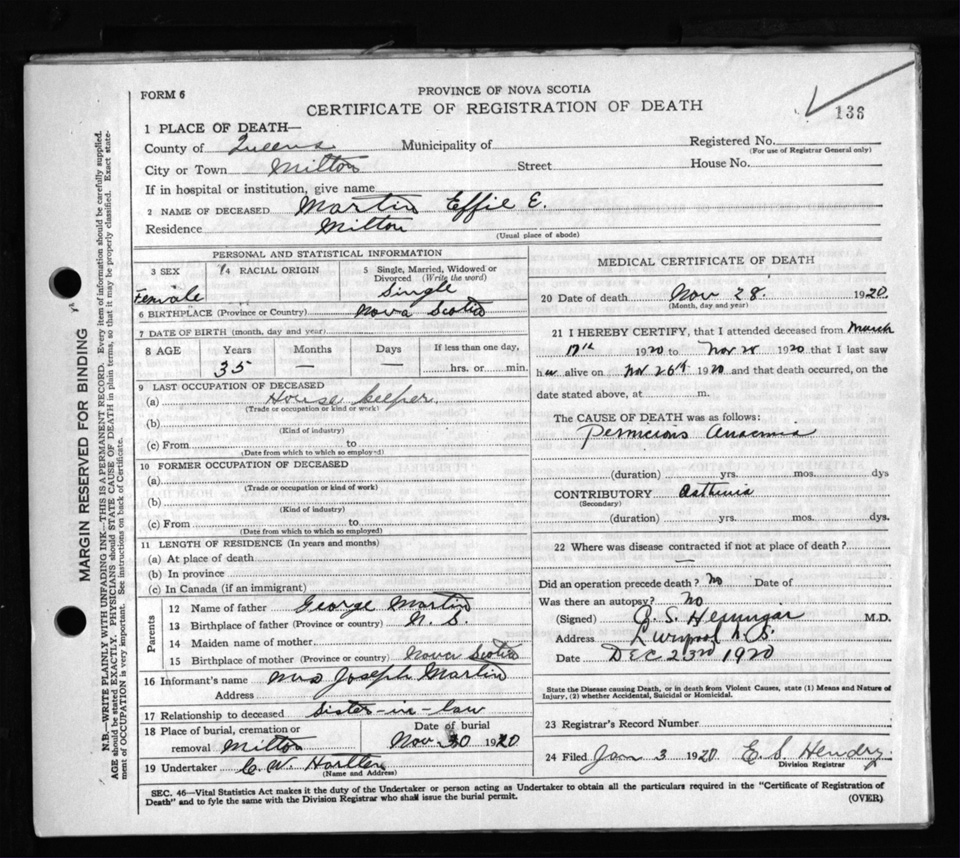 FORM 6
PROVINCE OF NOVA SCOTIA
CERTIFICATE OF REGISTRATION OF DEATH
136
1 PLACE OF DEATH—
County of Queens Municipality of Registered No.
(For use of Registrar General only)
City or Town Milton Street House No.
If in hospital or institution, give name
2 NAME OF DECEASED Martin Effie E.
Residence Milton
(Usual place of abode)
PERSONAL AND STATISTICAL INFORMATION
3 SEX 4 RACIAL ORIGIN 5 Single, Married, Widowed or Divorced (Write the word)
Female Single
6 BIRTHPLACE (Province or Country) Nova Scotia
7 DATE OF BIRTH (month, day and year)
8 AGE Years Months Days If less than one day,
35 — — hrs. or min.
9 LAST OCCUPATION OF DECEASED
(a) House keeper.
(Trade or occupation or kind or work)
(b)
(Kind of industry)
(c) From to
(Date from which to which so employed)
10 FORMER OCCUPATION OF DECEASED
(a)
(Trade or occupation or kind of work)
(b)
(Kind of industry)
(c) From to
(Date from which to which so employed)
11 LENGTH OF RESIDENCE (In years and months)
(a) At place of death
(b) In province
(c) In Canada (if an immigrant)
Parents
12 Name of father George Martin
13 Birthplace of father (Province or country) N. S.
14 Maiden name of mother
15 Birthplace of mother (Province or country) Nova Scotia
16 Informant's name Mrs Joseph Martin
Address
17 Relationship to deceased Sister-in-law
18 Place of burial, cremation or Date of burial
removal Milton Nov 30 1920
19 Undertaker C. W.
(Name and Address)
MEDICAL CERTIFICATE OF DEATH
20 Date of death Nov 28. 1920
(Month, day and year)
21 I HEREBY CERTIFY, that I attended deceased from March
17th 1920 to Nov 28 1920 that I last saw
her alive on Nov 26th 1920 and that death occurred, on the
date stated above, at m.
The CAUSE OF DEATH was as follows:
Pernicious Anaemia
(duration) yrs. mos. dys
CONTRIBUTORY Asthenia
(Secondary)
(duration) yrs. mos. dys.
22 Where was disease contracted if not at place of death?
—
Did an operation precede death? No Date of
Was there an autopsy? No
(Signed) S. Hennigar M.D.
Address Liverpool N.S.
Date DEC 23rd 1920
State the Disease causing Death, or in death from Violent Causes, state (1) Means and Nature of
Injury, (2) whether Accidental, Suicidal or Homicidal.
23 Registrar's Record Number
24 Filed Jan 3 1920 E. S. Hendry
Division Registrar
SEC. 46—Vital Statistics Act makes it the duty of the Undertaker or person acting as Undertaker to obtain all the particulars required in the "Certificate of Registration of
Death" and to fyle the same with the Division Registrar who shall issue the burial permit.
(OVER)
MARGIN RESERVED FOR BINDING
N.B.—WRITE PLAINLY WITH UNFADING INK—THIS IS A PERMANENT RECORD. Every item of information should be carefully supplied.
AGE should be stated EXACTLY. PHYSICIANS should STATE CAUSE OF DEATH in plain terms, so that it may be properly classified. Exact state-
ment of OCCUPATION is very important. See instructions on back of Certificate.